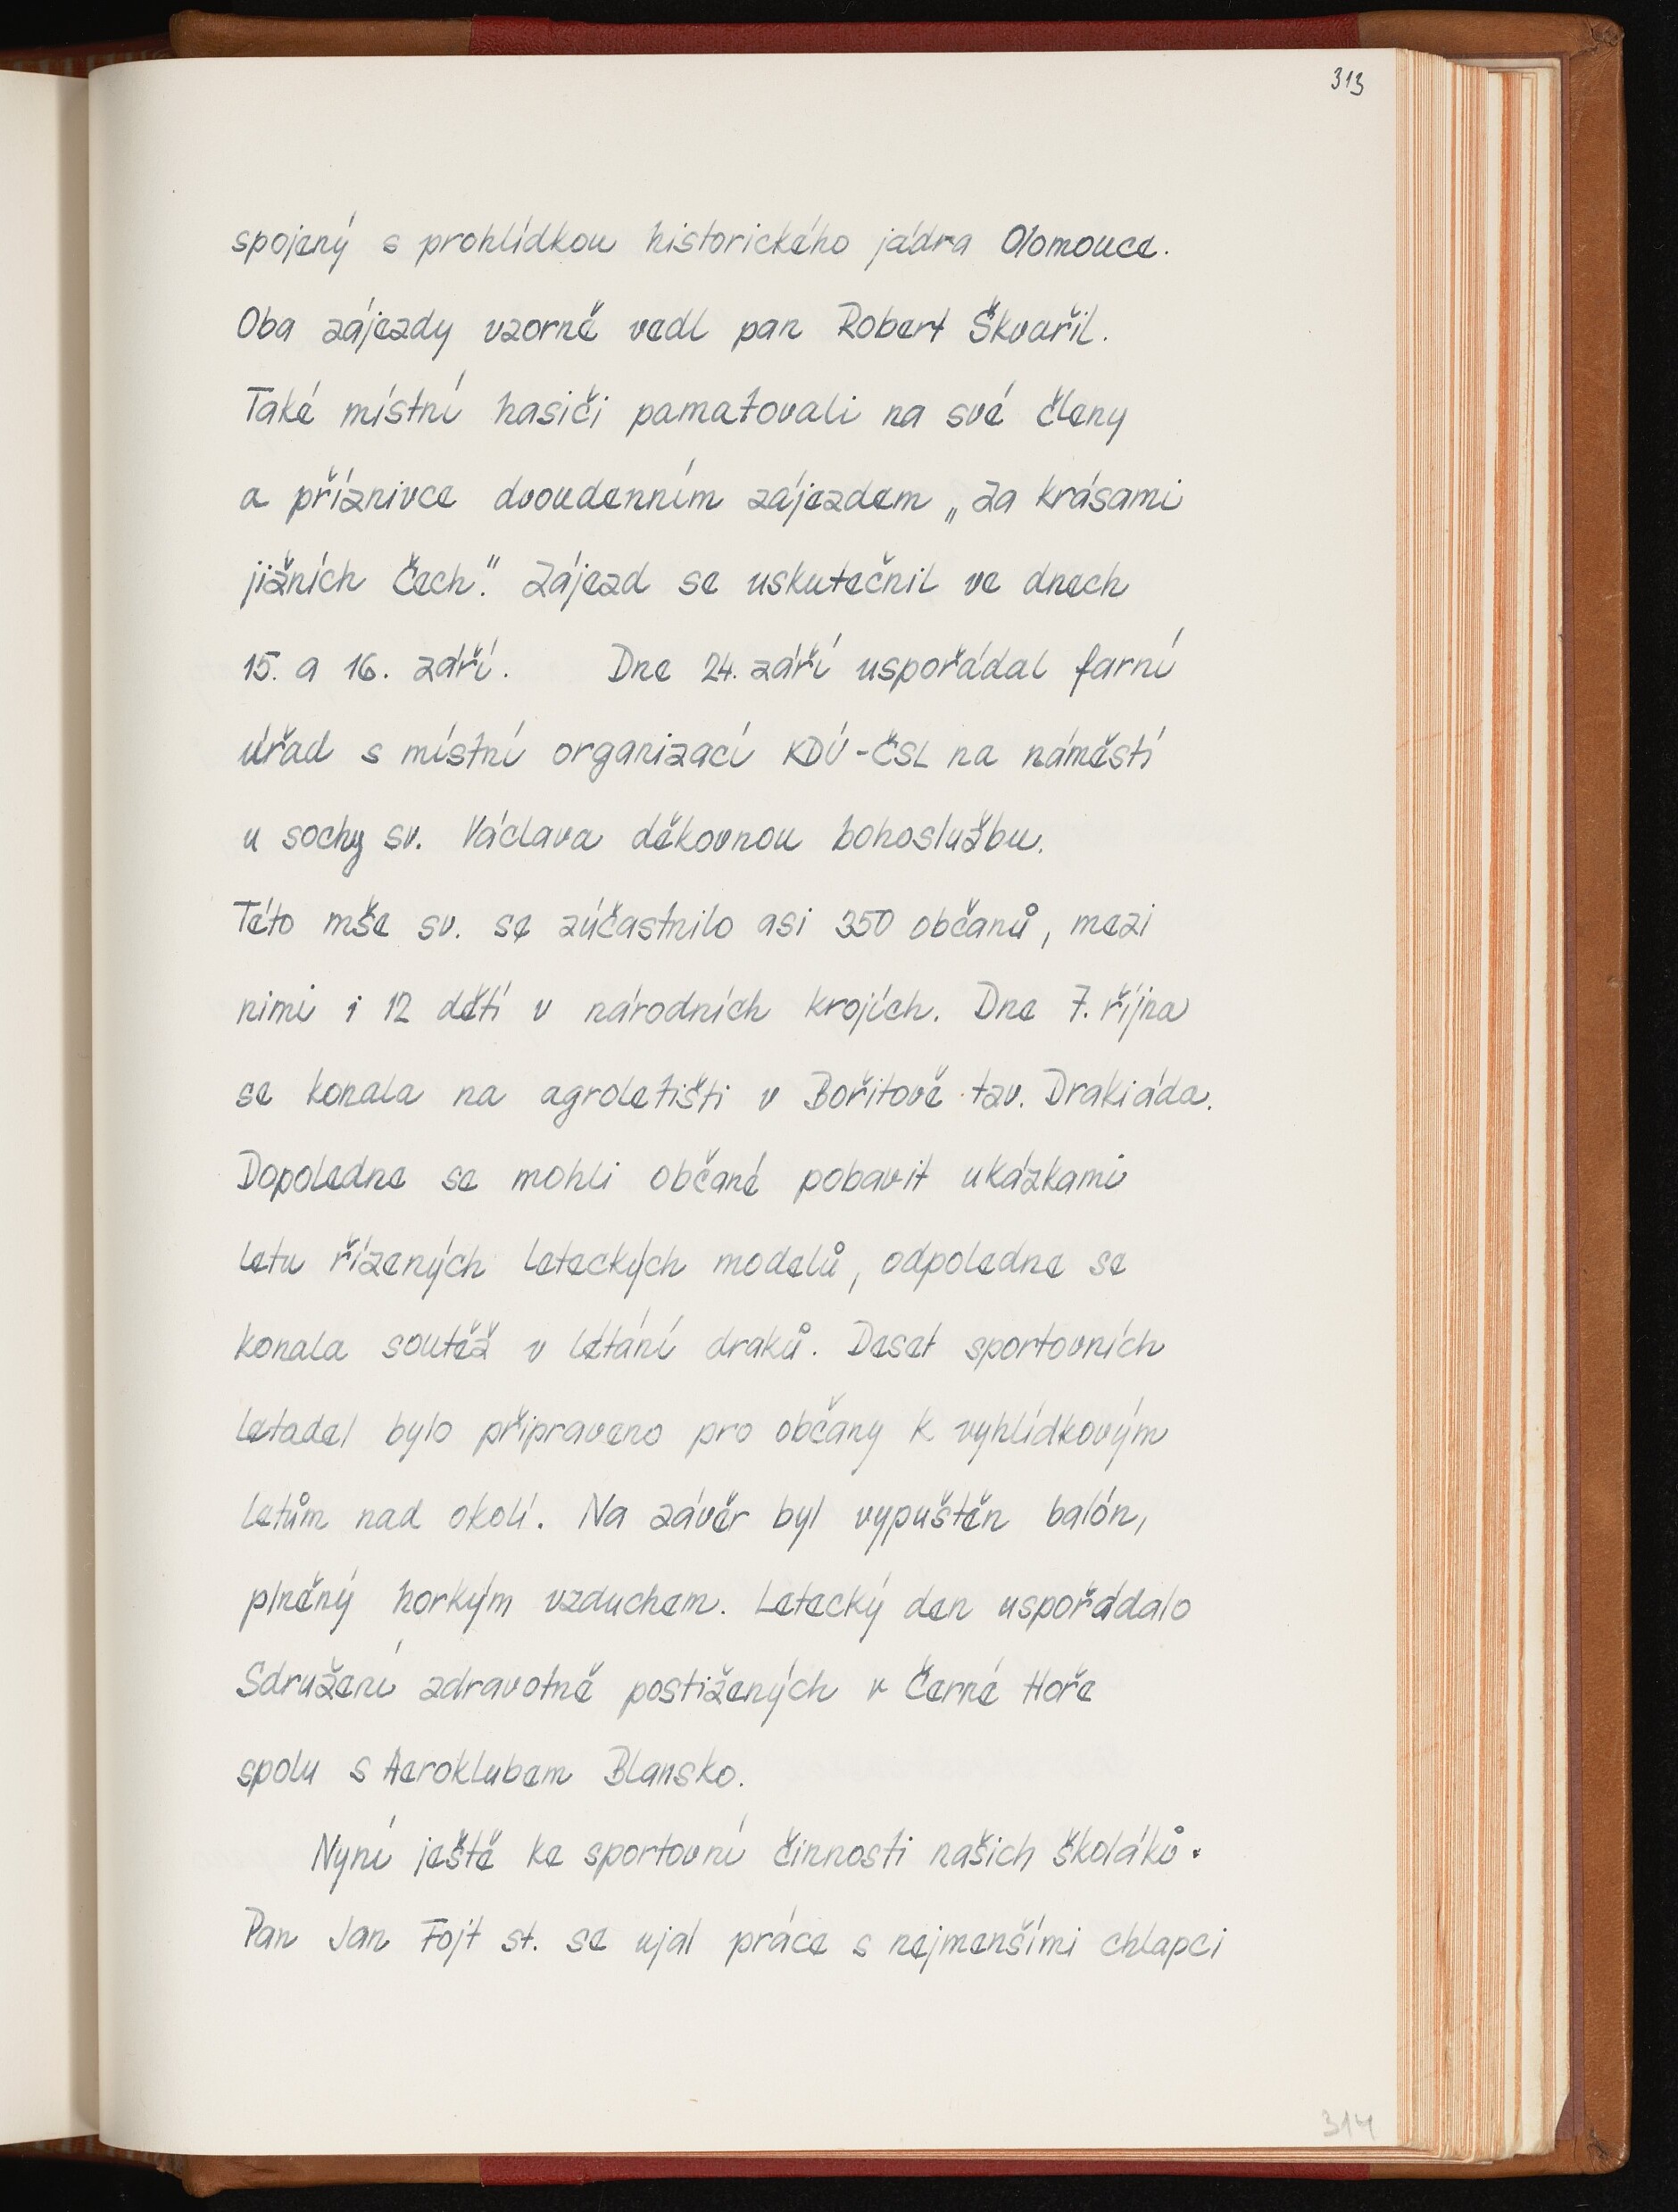 313
spojený s prohlídkou historického jádra Olomouce.
Oba zájezdy vzorně vedl pan Robert Škvařil.
Také místní hasiči pamatovali na své členy
a příznivce dvoudenním zájezdem „Za krásami
jižních Čech." Zájezd se uskutečnil ve dnech
15. a 16. září. Dne 24. září uspořádal farní
úřad s místní organizací KDU-ČSL na náměstí
u sochy sv. Václava děkovnou bohoslužbu.
Této mše sv. se zúčastnilo asi 350 občanů, mezi
nimi i 12 dětí v národních krojích. Dne 7. října
se konala na agroletišti v Bořitově tzv. Drakiáda.
Dopoledne se mohli občané pobavit ukázkami
letu řízených leteckých modelů, odpoledne se
konala soutěž v létání draků. Deset sportovních
letadel bylo připraveno pro občany k vyhlídkovým
letům nad okolí. Na závěr byl vypuštěn balón,
plněný horkým vzduchem. Letecký den uspořádalo
Sdružení zdravotně postižených v Černé Hoře
spolu s Aeroklubem Blansko.
Nyní ještě ke sportovní činnosti našich školáků.
Pan Jan Fojt st. se ujal práce s nejmenšími chlapci
314